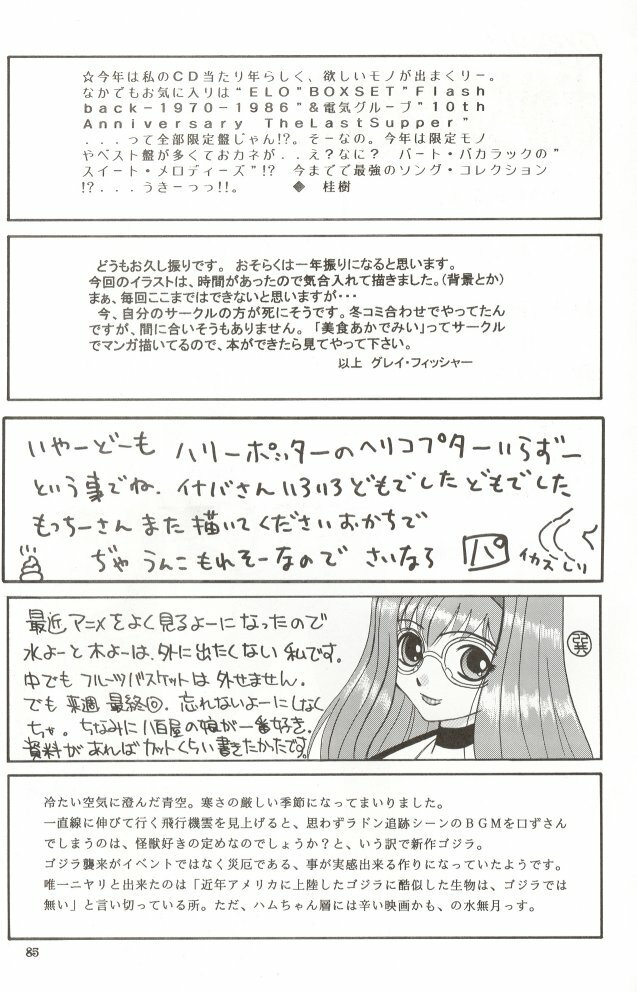 ☆今年は私のCD当たり年らしく、欲しいモノが出まくりー。
なかでもお気に入りは“ELO”BOXSET”Flash
back−1970−1986”&電気グループ”10th
Anniversary TheLastSupper”
...って全部限定盤じゃん!?。そーなの。今年は限定モノ
やベスト盤が多くておカネが..え?なに? バート・バカラックの”
スイート・メロディーズ”!? 今までで最強のソング・コレクション
!?...うきーっっ!!。 ◆ 桂樹
どうもお久し振りです。おそらくは一年振りになると思います。
今回のイラストは、時間があったので気合入れて描きました。(背景とか)
まぁ、毎回ここまではできないと思いますが・・・
今、自分のサークルの方が死にそうです。冬コミ合わせでやってたん
ですが、間に合いそうもありません。「美食あかでみい」ってサークル
でマンガ描いてるので、本ができたら見てやって下さい。
以上 グレイ・フィッシャー
いやーどーも ハリーポッターのヘリコプターいらずー
という事でね.イナバさんいろいろどもでしたどもでした
もっちーさんまた描いてくださいおかちで
ぢゃうんこもれそーなので さいなら パ イカズしり
最近アニメをよく見るよーになったので
水よーと木よーは、外に出たくない私です。
中でもフルーツバスケットは外せません.
でも来週最終回.忘れないよーにしなく
ちゃ。ちなみに八百屋の娘が一番好き.
資料があればカットくらい書きたかったです。
冷たい空気に澄んだ青空。寒さの厳しい季節になってまいりました。
一直線に伸びて行く飛行機雲を見上げると、思わずラドン追跡シーンのBGMを口ずさん
でしまうのは、怪獣好きの定めなのでしょうか?と、いう訳で新作ゴジラ。
ゴジラ襲来がイベントではなく災厄である、事が実感出来る作りになっていたようです。
唯一ニヤリと出来たのは「近年アメリカに上陸したゴジラに酷似した生物は、ゴジラでは
無い」と言い切っている所。ただ、ハムちゃん層には辛い映画かも、の水無月っす。
85